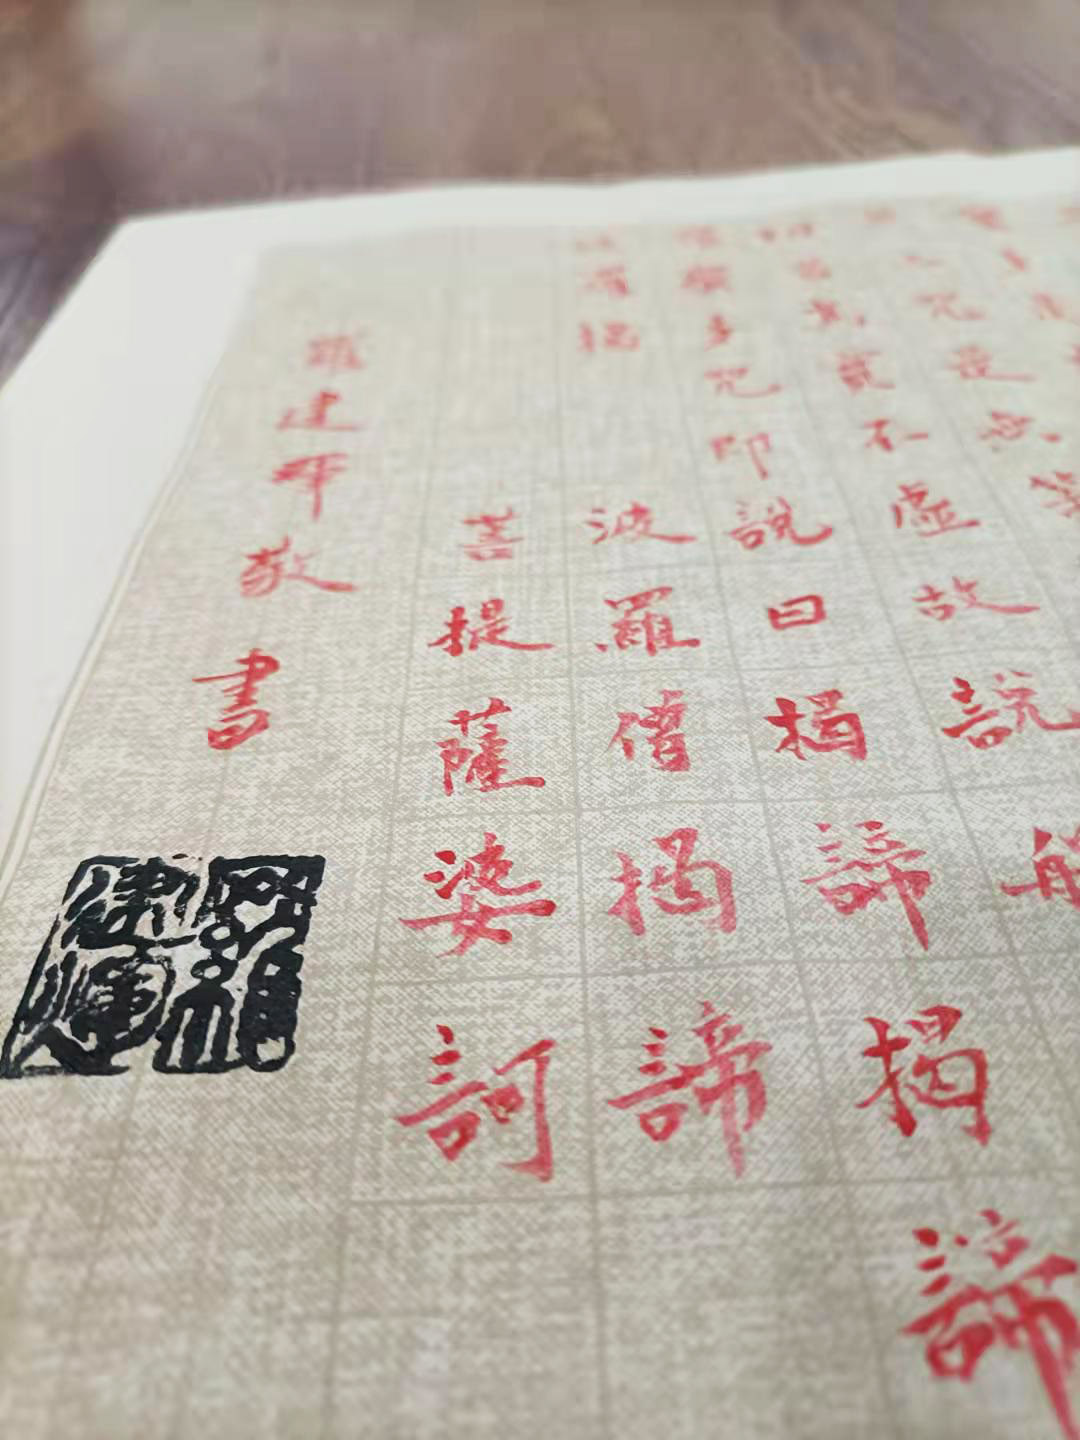 咒是無等
切苦真實不虛故說般
羅蜜多咒即說曰揭諦揭諦
波羅揭
波羅僧揭諦
菩提薩婆訶
羅建敬書
羅建輝